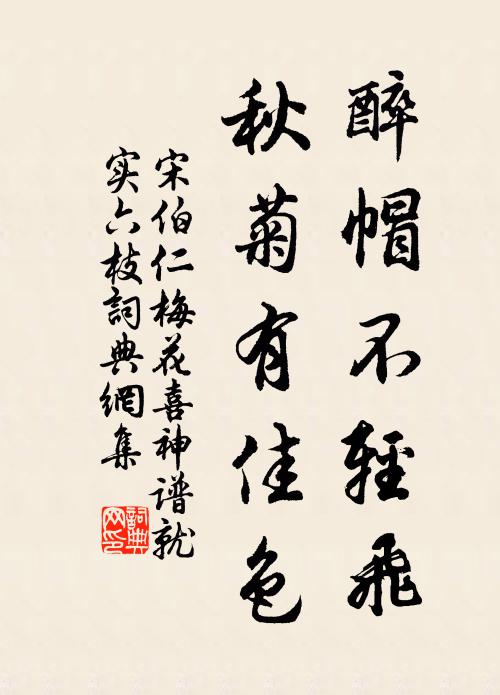 醉帽不輕飛
秋菊有佳色
宋伯仁梅花喜神谱就
实六枝詞典網集
詞典
网印